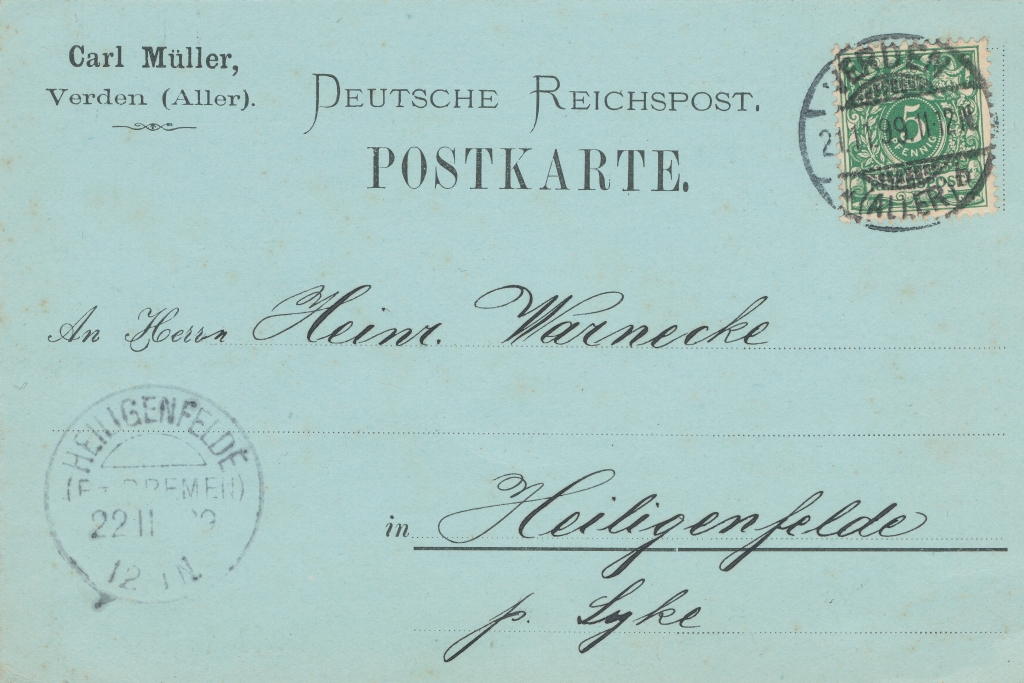 Carl Müller,
Verden (Aller).
DEUTSCHE REICHSPOST.
POSTKARTE.
VERDEN
21.11.99. 1-12 N.
(ALLER)
5
PFENNIG
An Herrn Heinr. Warnecke
HEILIGENFELDE
BREMEN)
22 11 99
12 1 N.
in Heiligenfelde
p. Syke